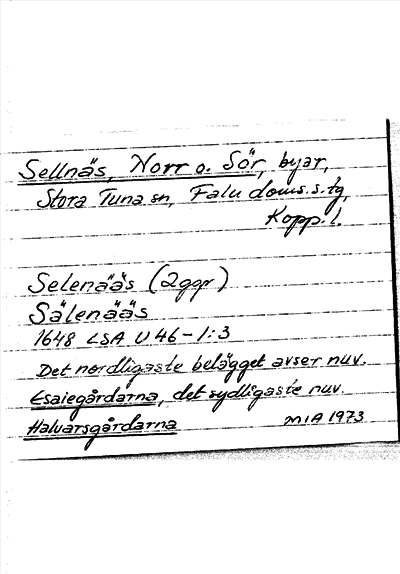 Sellnäs, Norr o. Sör, byar,
Stora Tuna sn, Falu doms.s.tg,
Kopp. l.
Selenääs (2ggr)
Sälenääs
1648 LSA U46-1:3
Det nordligaste belägget avser nuv.
Esaiegårdarna, det sydligaste nuv.
Halvarsgårdarna MIA 1973